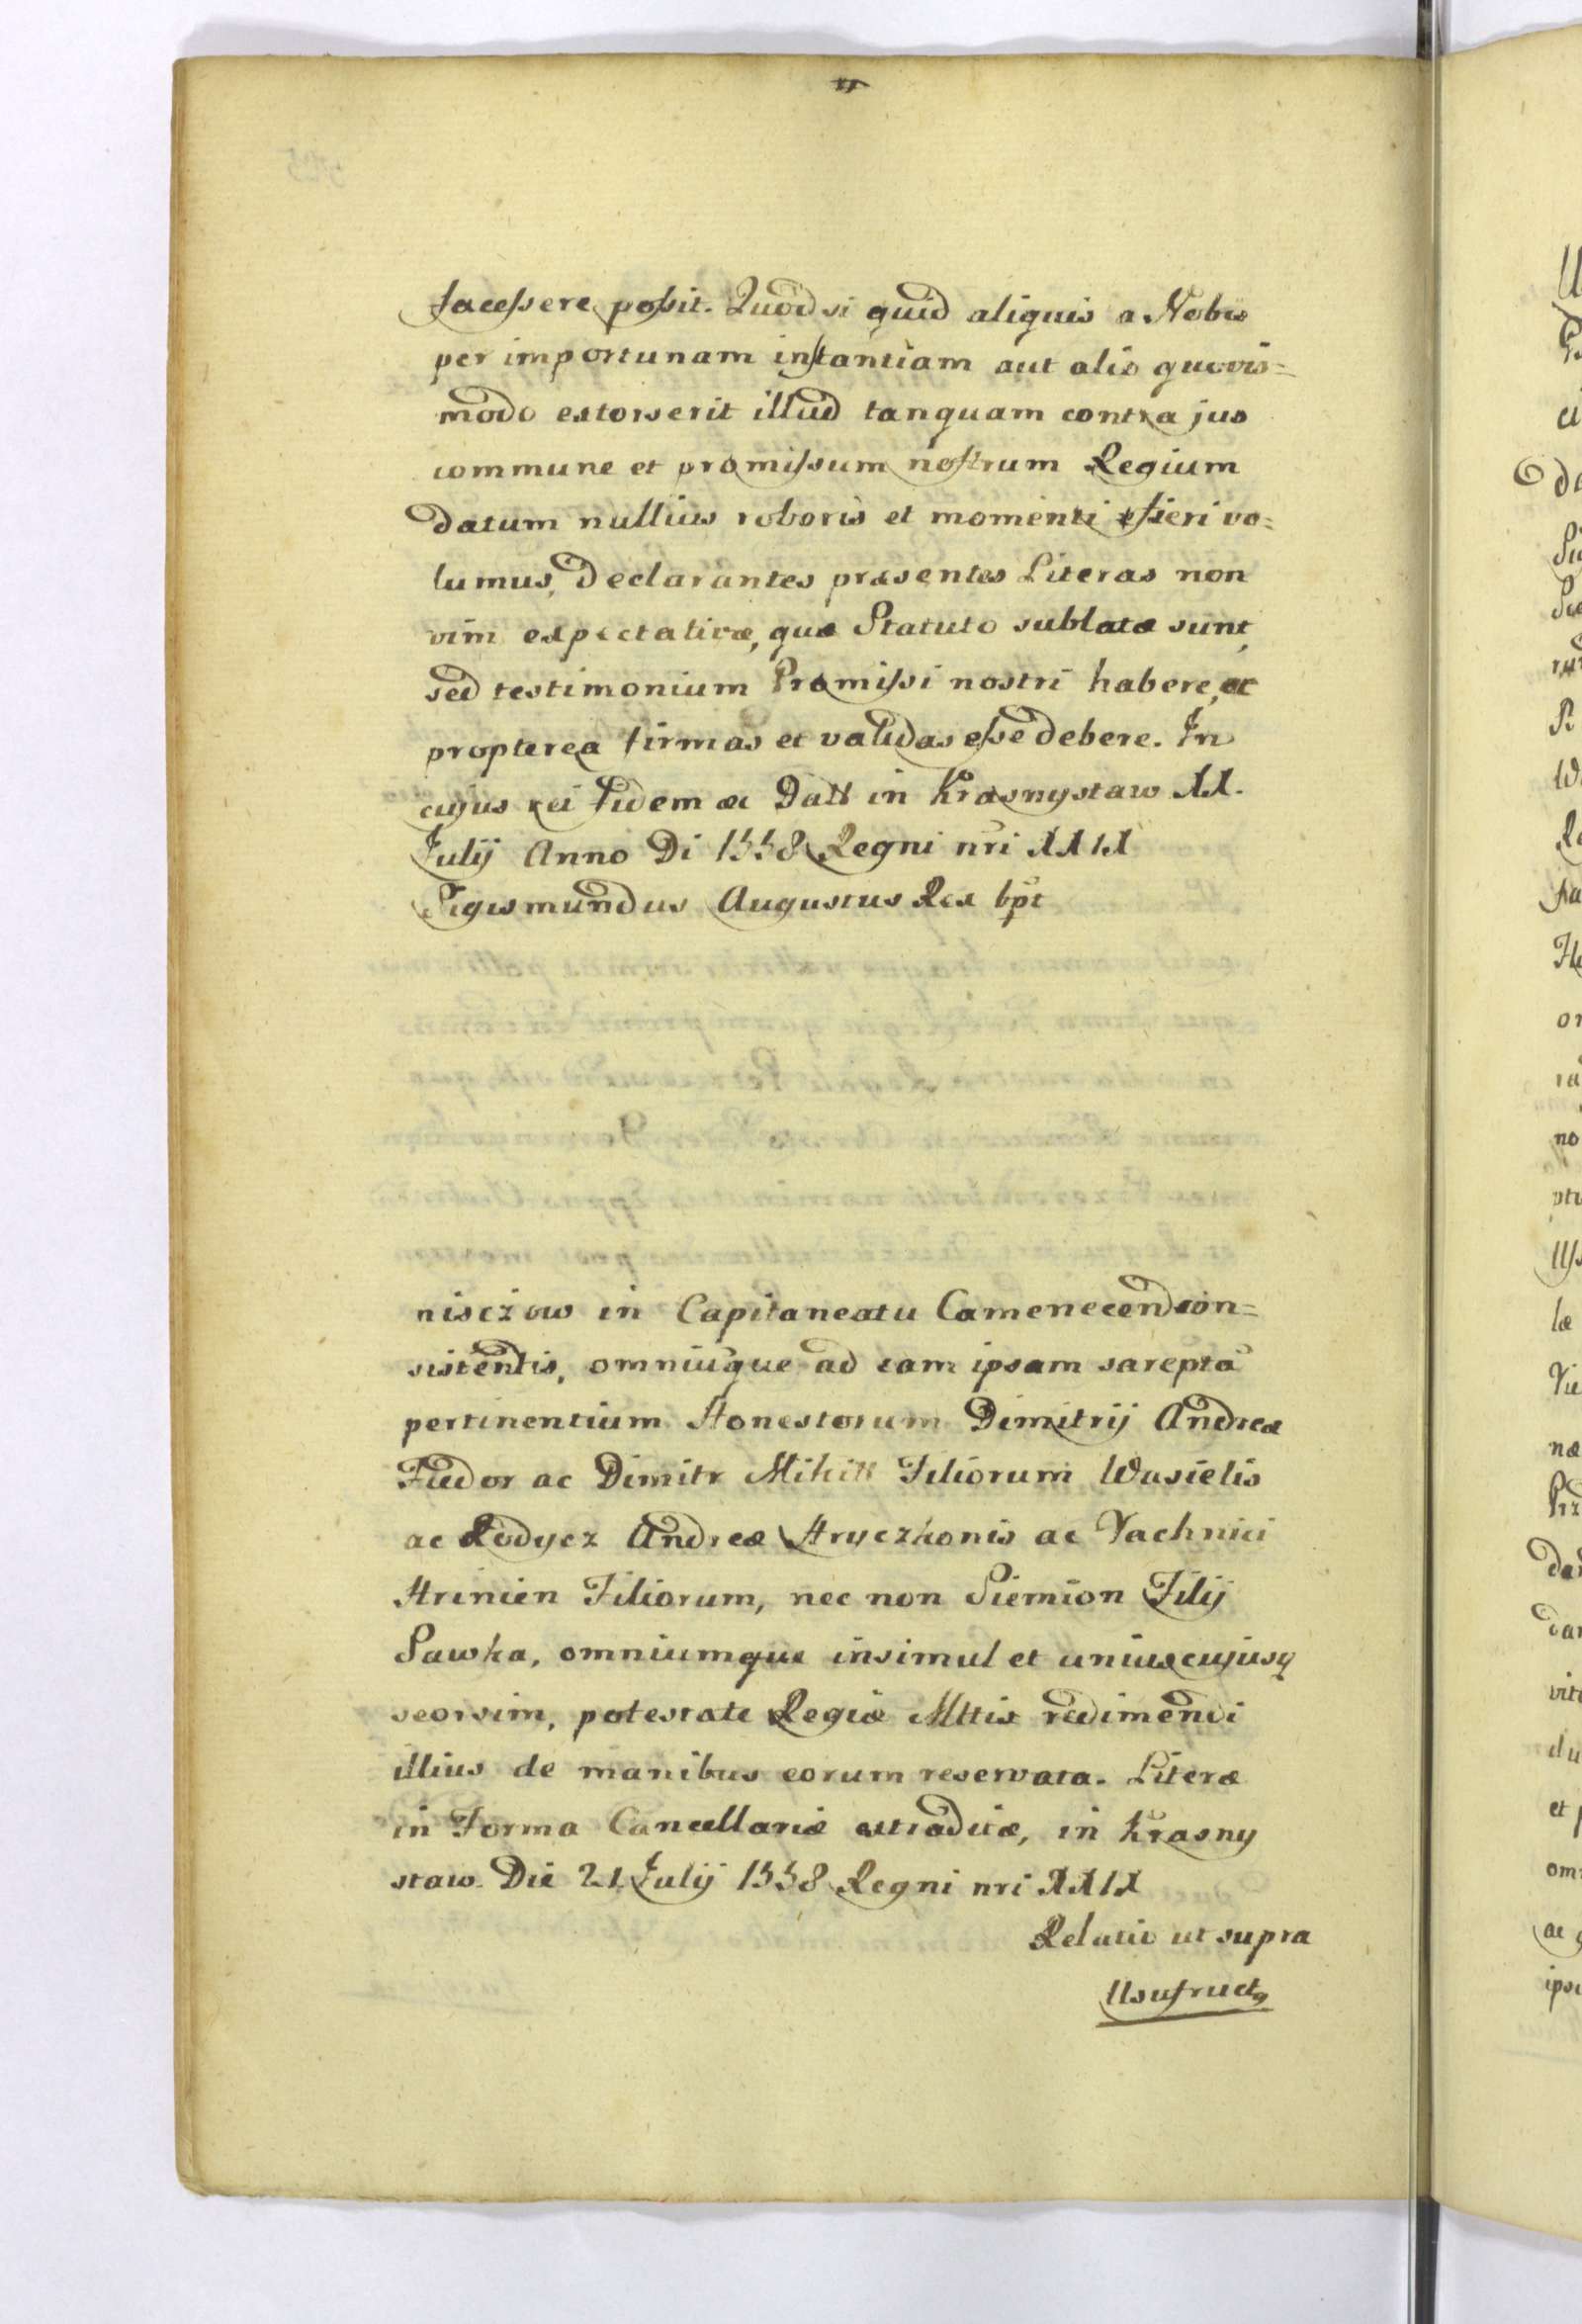 facessere possit. Quod si quid aliquis a Nobis
per importunam instantiam aut alio quovis=
modo extorserit illud tanquam contra jus
commune et promissum nostrum Regium
datum nullius roboris et momenti fieri vo=
lumus, declarantes præsentes Literas non
vim expectativæ, quæ Statuto sublatæ sunt,
sed testimonium Promissi nostri habere, ac
propterea firmas et validas esse debere. In
cujus rei fidem æc Datt in Krasnystaw XX.
Julij Anno Di 1558 Regni nri XXIX
Sigismundus Augustus Rex bpt
nisczow in Capitaneatu Camenecend con=
sistentis, omniuque ad eam ipsam sarepta
pertinentium Honestorum Dimitrij Andreæ
Fiedor ac Dimitr Mihitt Filiorum Wasielis
ac Rodycz Andreæ Hryczkonis ac Vachnici
Hrinien Filiorum, nec non Siemion Filij
Sawka, omniumque insimul et uniuscujusq
seorsim, potestate Regiæ Mttis redimendi
illius de manibus eorum reservata. Literæ
in Forma Cancellariæ extraditæ, in Krasny
staw Die 21 Julij 1558 Regni nri XXIX
Relatio ut supra
Usufruct